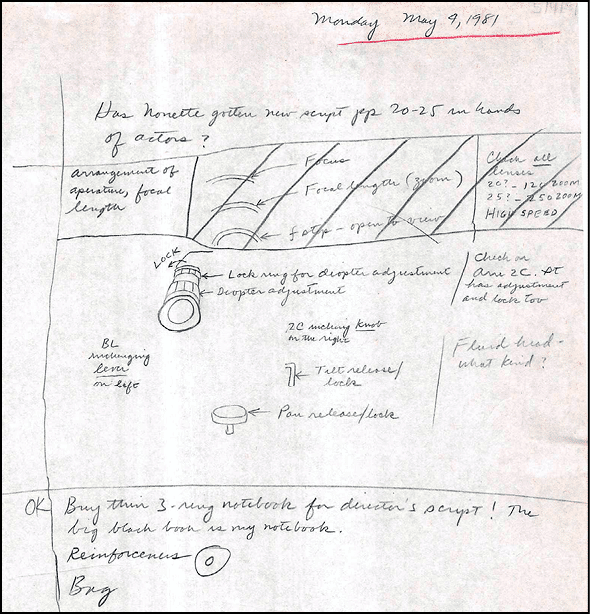 Monday May 4, 1981
Has Nonette gotten new script pgs 20-25 in hands
of actors?
arrangement of
aperature, focal
length
Focus
Focal length (zoom)
f stop - open to view
Check all
lenses
20? - 120 ZOOM
25? - 250 ZOOM
HIGH SPEED
LOCK
Lock ring for diopter adjustment
Diopter adjustment
Check on
Arri 2C. It
has adjustment
and lock too
BL
inching
lever
on left
2C inching knob
on the right
Tilt release/
lock
Pan release/lock
Fluid head -
what kind?
OK
Buy thin 3-ring notebook for director's script! The
big black book is my notebook.
Reinforcers
Bag